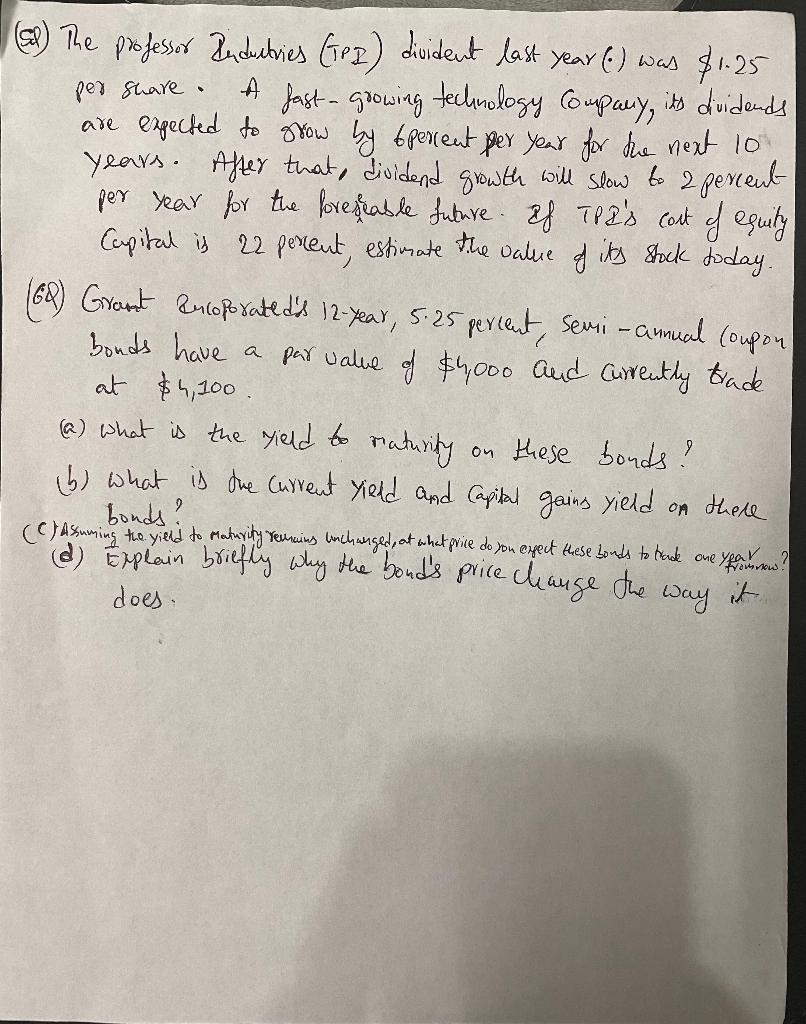 (5Q) The professor Industries (TPI) divident last year (.) was $1.25
per share. A fast-growing technology Company, its dividends
are expected to grow by 6percent per year for the next 10
years. After that, dividend growth will slow to 2 percent
per year for the foreseeable future. If TPI's cost of equity
Capital is 22 percent, estimate the value of its stock today.
(6Q) Grant Incoporated's 12-year, 5.25 percent, semi-annual coupon
bonds have a par value of $4,000 and currently trade
at $4,100.
(a) what is the yield to maturity on these bonds?
(b) what is the current yield and capital gains yield on these
bonds?
(c) Assuming the yield to maturity remains unchanged, at what price do you expect these bonds to trade one year from now?
(d) Explain briefly why the bond's price change the way it
does.